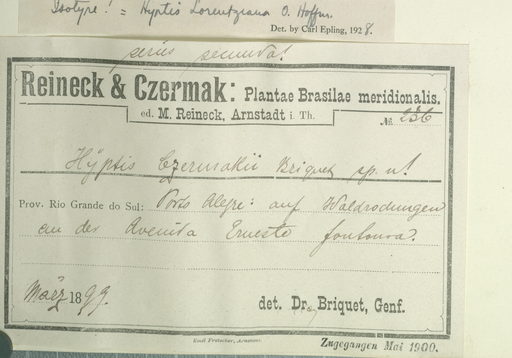 Isotype! = Hyptis Lorentziana O. Hoffm.
Det. by Carl Epling, 1928.
series secunda!
Reineck & Czermak: Plantae Brasilae meridionalis.
ed. M. Reineck, Arnstadt i. Th.
№ 236
Hÿptis Czermakii Briquet sp. n!
Prov. Rio Grande do Sul: Porto Alegre: auf Waldrodungen
an der Avenita Ernesto fontoura.
März 1899.
det. Dr. Briquet, Genf.
Emil Frotscher, Arnstadt.
Zugegangen Mai 1900.